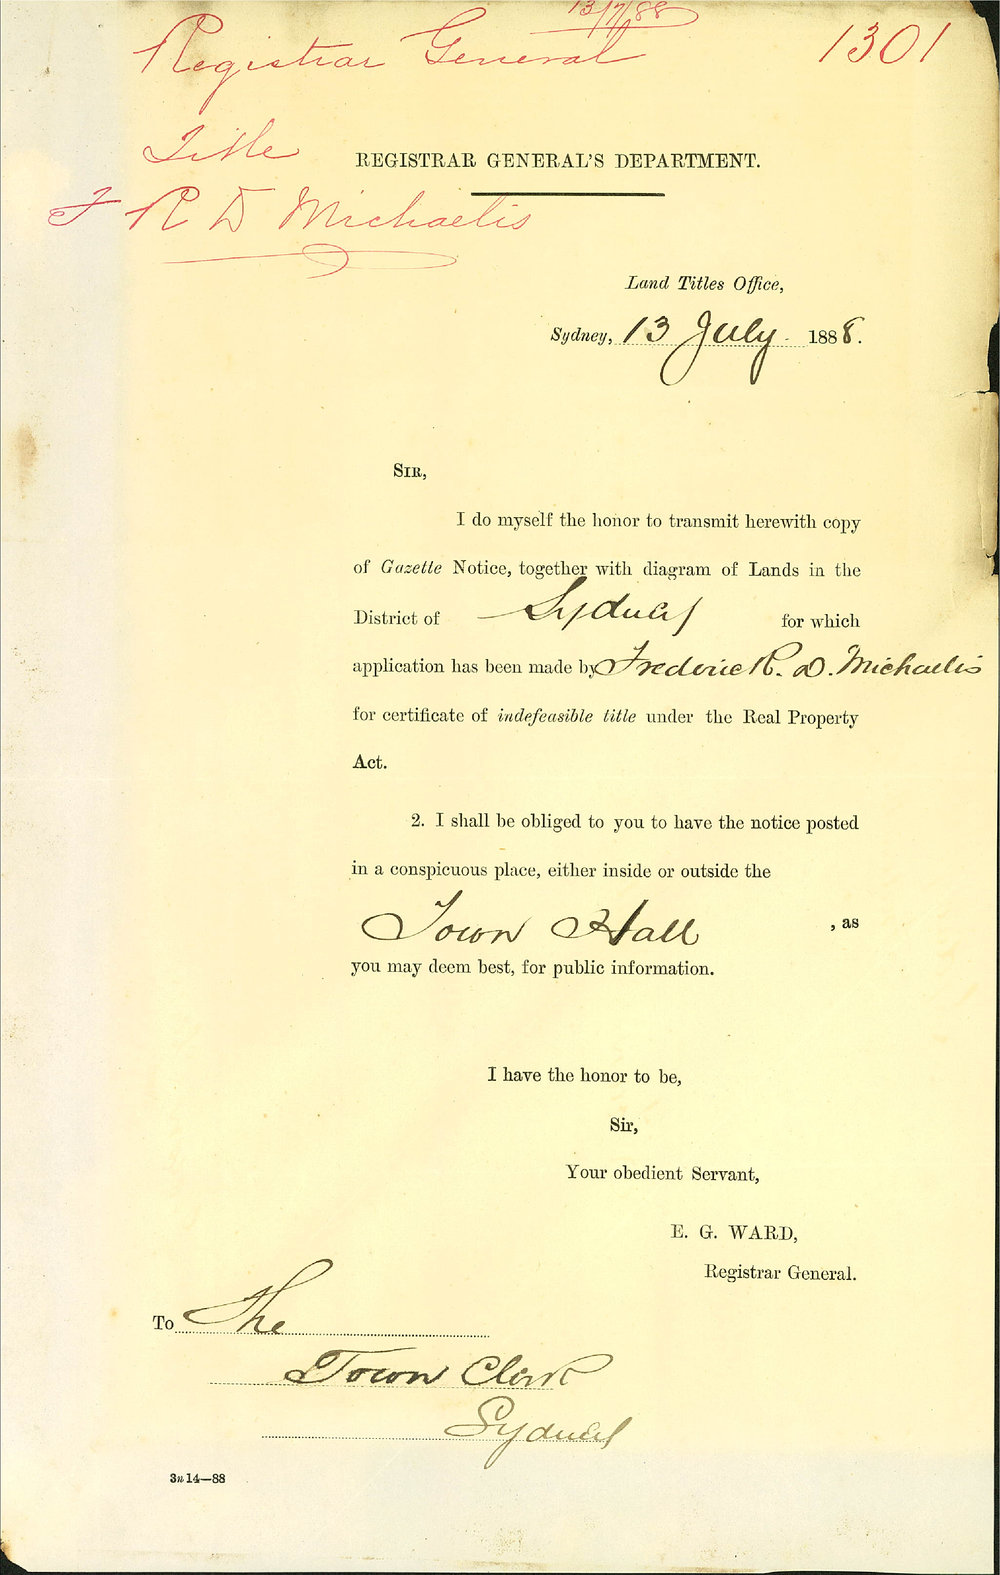 13/7/88
Registrar General 1301
Title
REGISTRAR GENERAL'S DEPARTMENT.
F R D Michaelis
Land Titles Office,
Sydney, 13 July 1888.
SIR,
I do myself the honor to transmit herewith copy
of Gazette Notice, together with diagram of Lands in the
District of Sydney for which
application has been made by Frederic R. D. Michaelis
for certificate of indefeasible title under the Real Property
Act.
2. I shall be obliged to you to have the notice posted
in a conspicuous place, either inside or outside the
Town Hall, as
you may deem best, for public information.
I have the honor to be,
Sir,
Your obedient Servant,
E. G. WARD,
Registrar General.
To The
Town Clerk
Sydney
3n 14—88